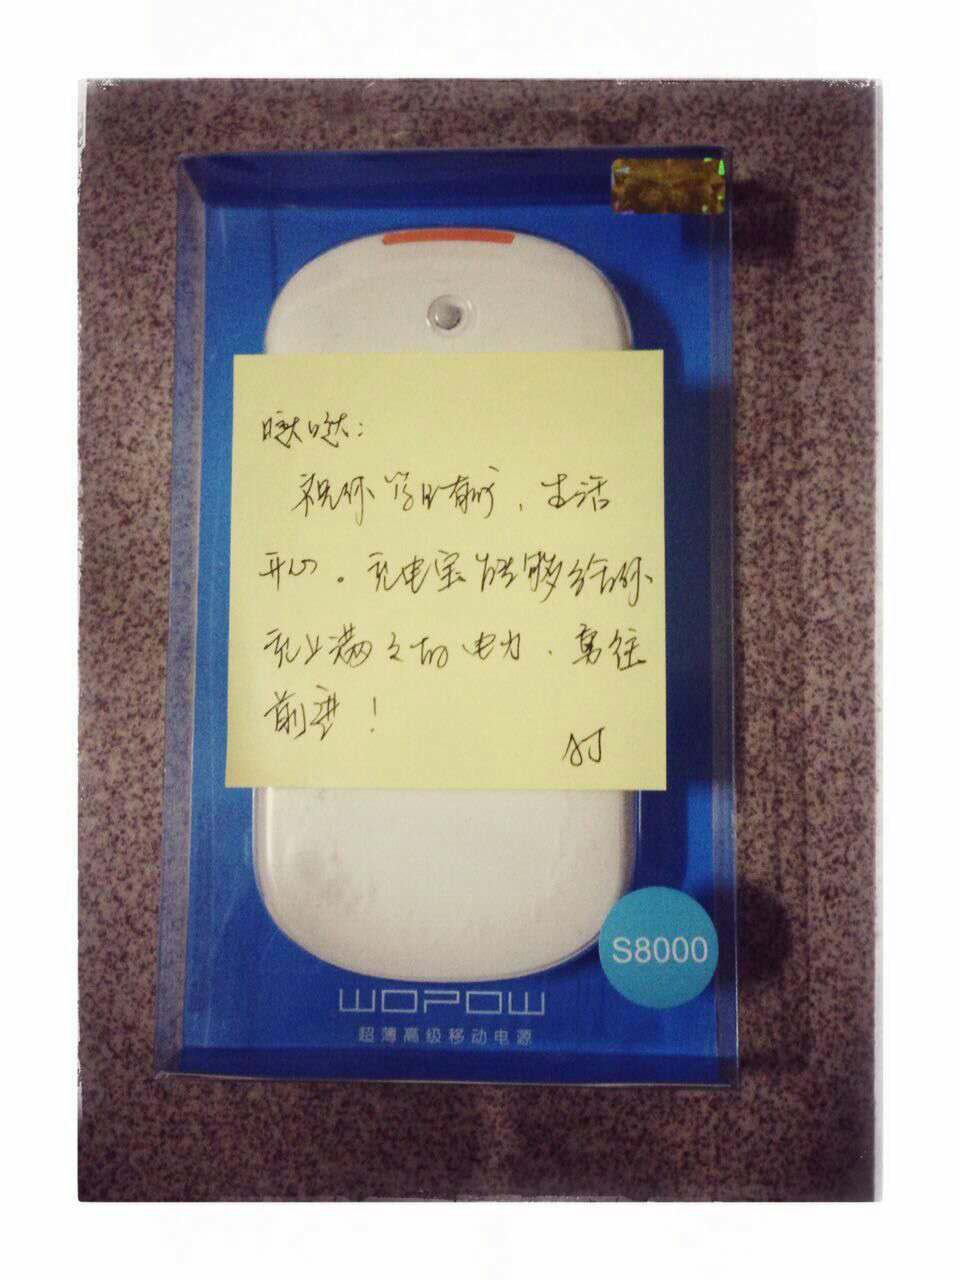 哒哒：
祝你 学日有成，生活
开心。充电宝能够给你
充上满满的电力，勇往
前进！
AJ
S8000
WOPOW
超薄高级移动电源